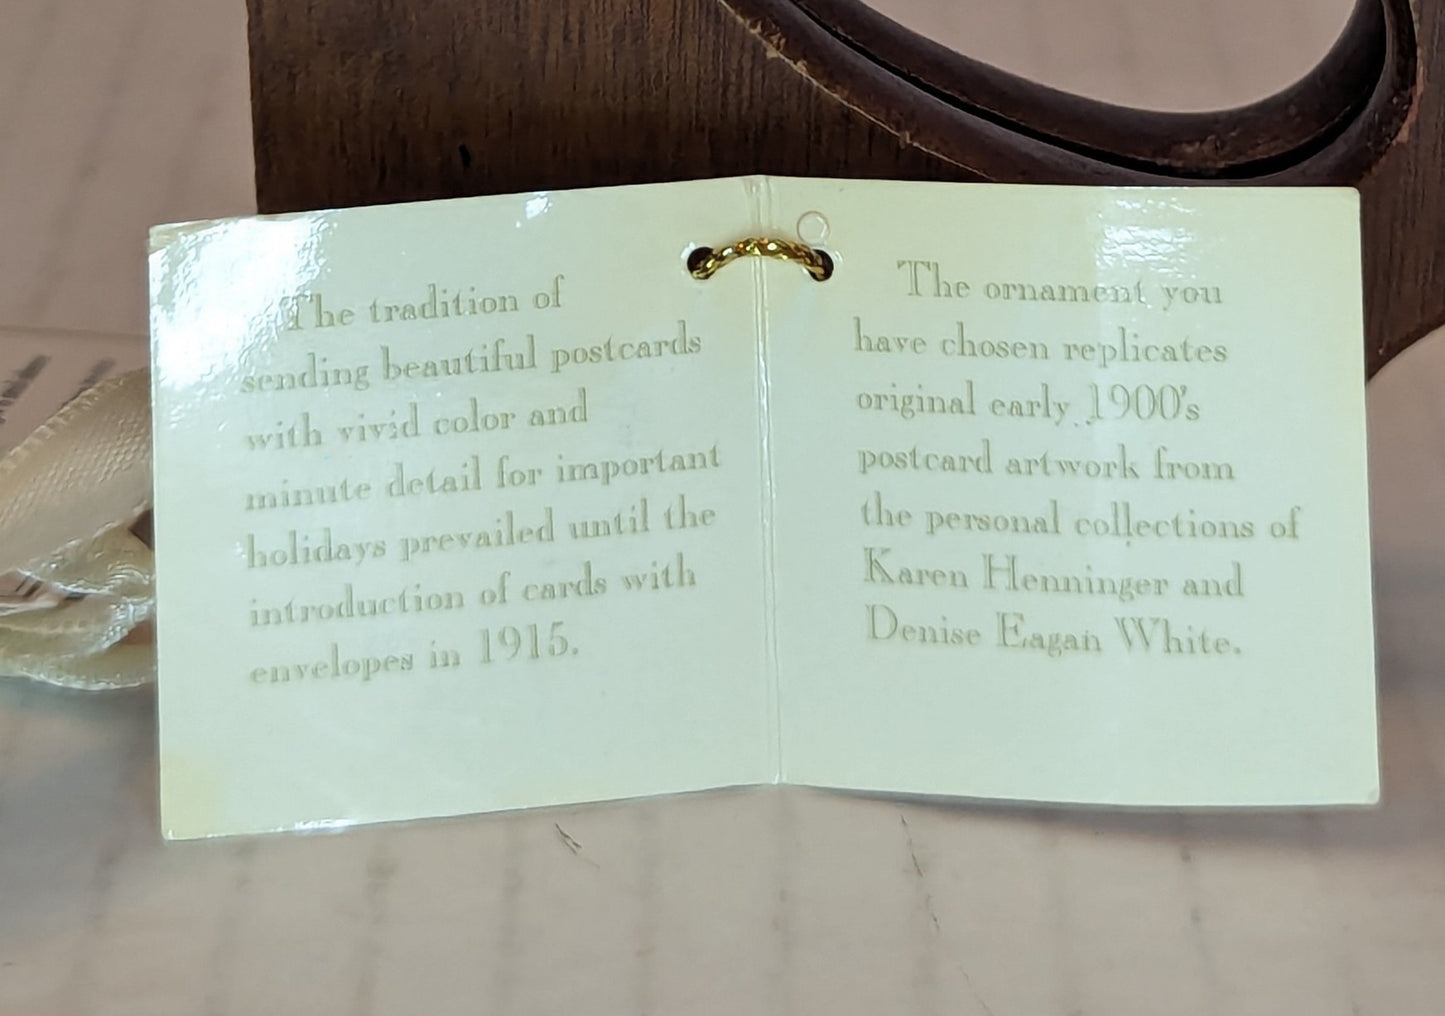 The tradition of
sending beautiful postcards
with vivid color and
minute detail for important
holidays prevailed until the
introduction of cards with
envelopes in 1915.
The ornament you
have chosen replicates
original early 1900's
postcard artwork from
the personal collections of
Karen Henninger and
Denise Eagan White.